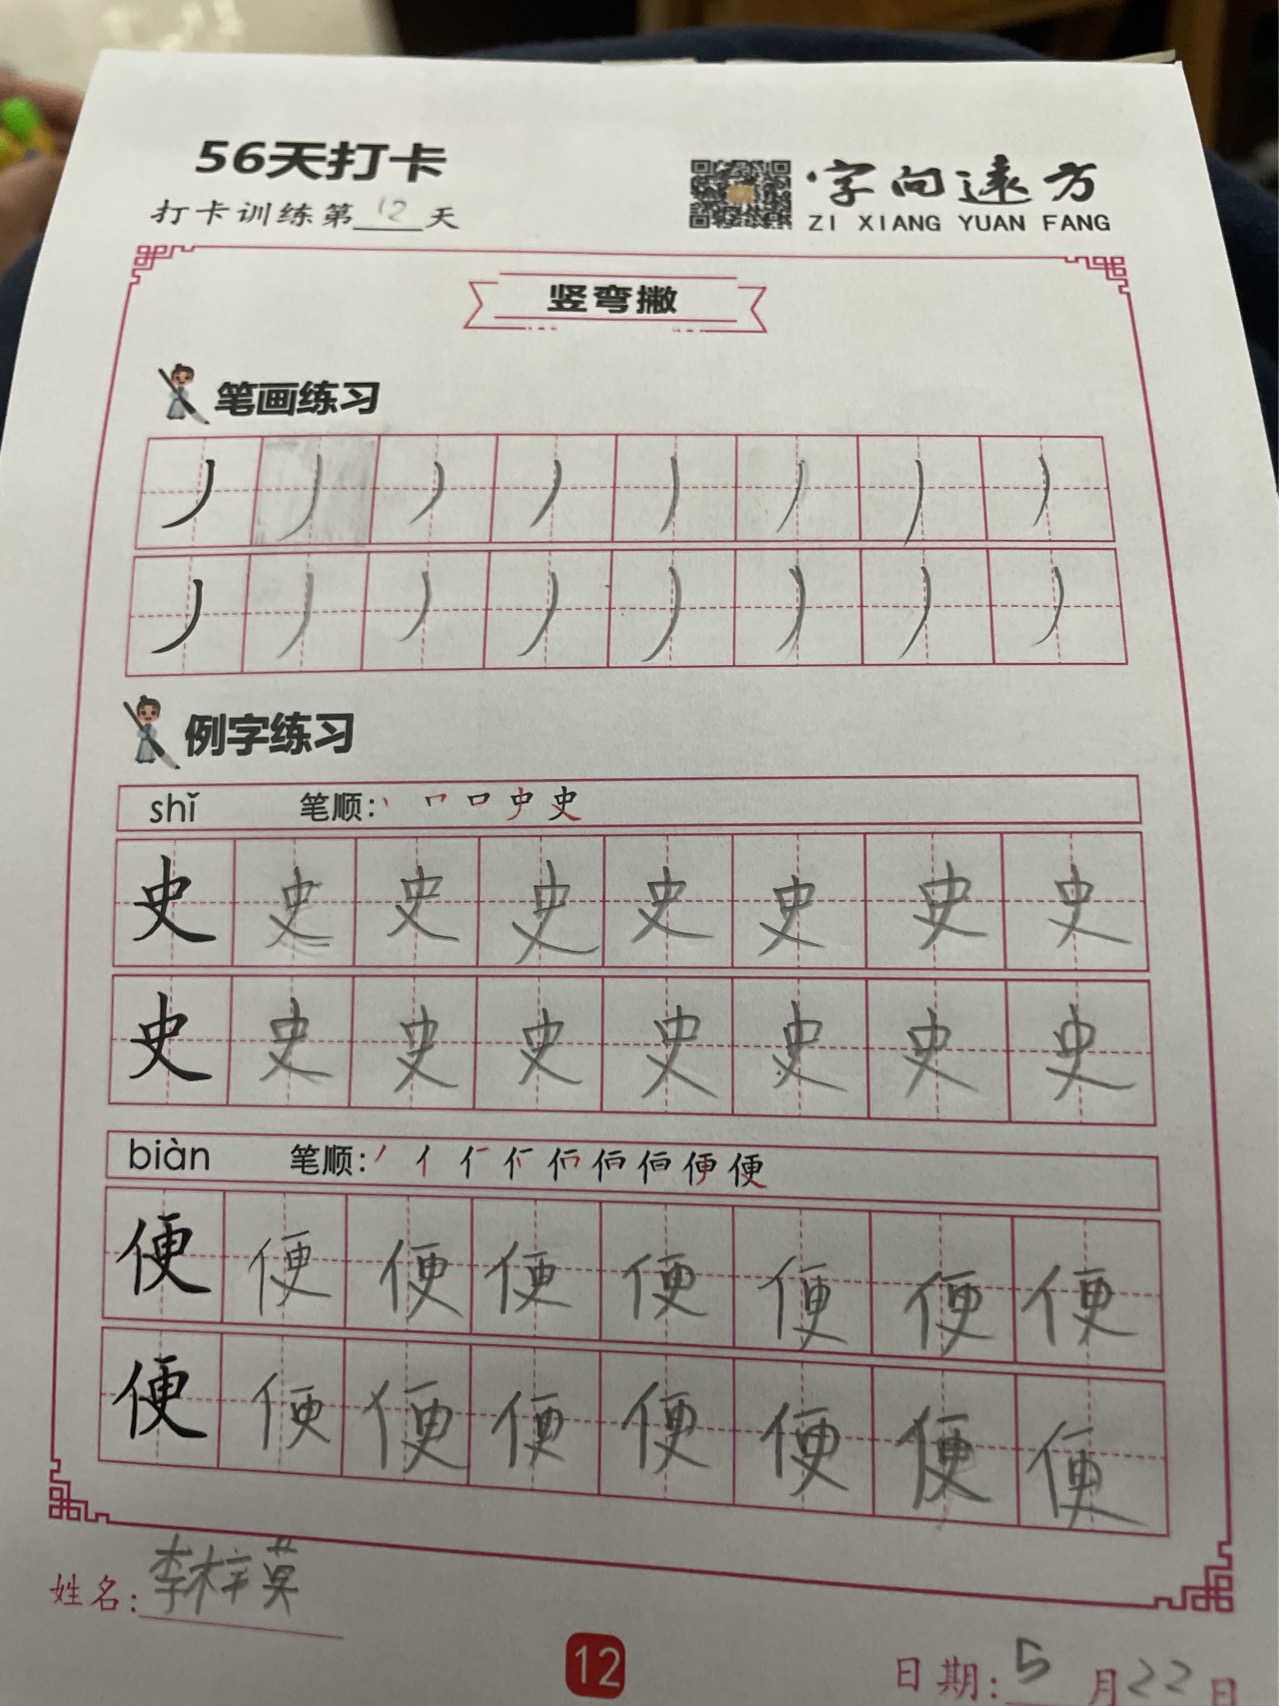 56天打卡
打卡训练第12天
字向远方
ZI XIANG YUAN FANG
竖弯撇
笔画练习
丿 丿 丿 丿 丿 丿 丿 丿
丿 丿 丿 丿 丿 丿 丿 丿
例字练习
shǐ 笔顺: 丨 𠃍 口 史 史
史 史 史 史 史 史 史 史
史 史 史 史 史 史 史 史
biàn 笔顺: 丿 亻 便
便 便 便 便 便 便 便 便
便 便 便 便 便 便 便 便
姓名: 李梓萁
12
日期: 5月22日